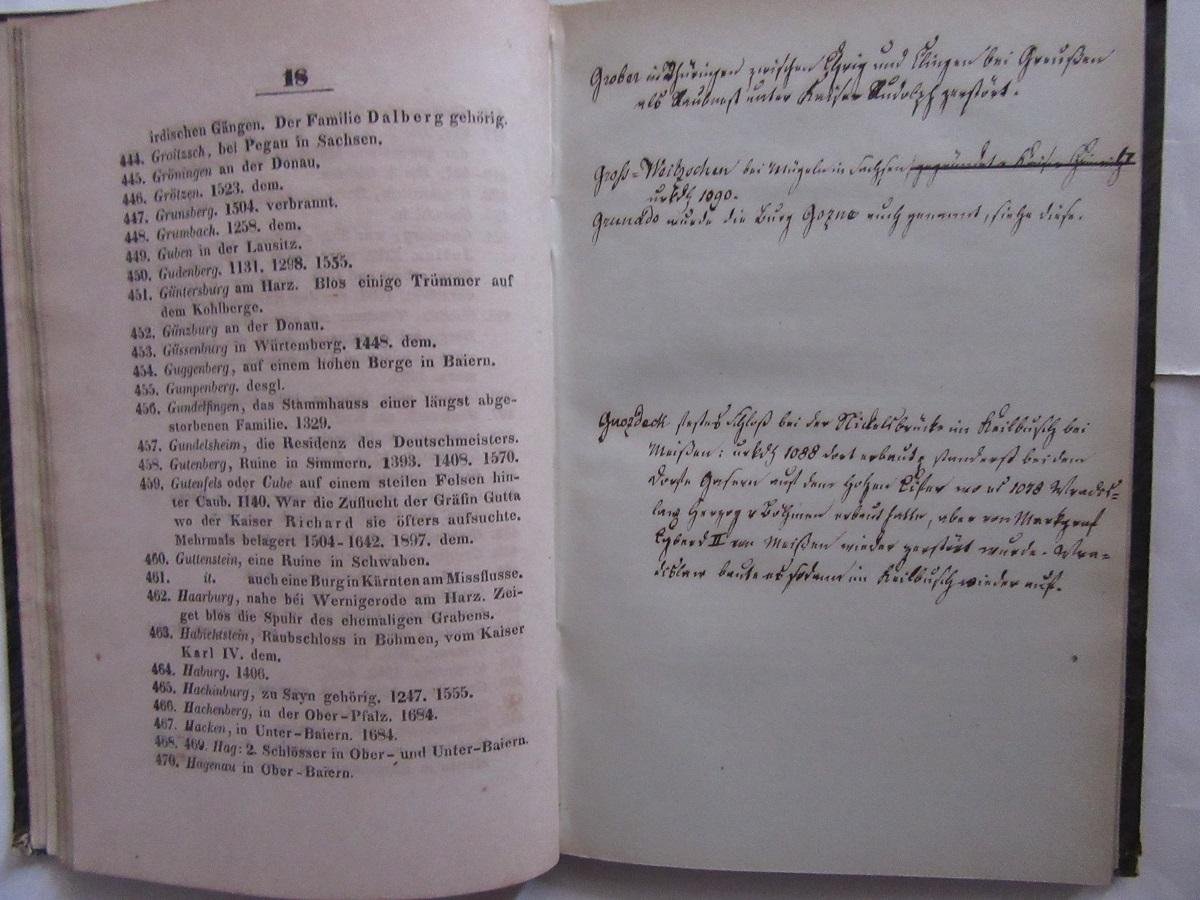 18
irdischen Gängen. Der Familie Dalberg gehörig.
444. Groitzsch, bei Pegau in Sachsen.
445. Gröningen an der Donau.
446. Grötzen. 1523. dem.
447. Grunsberg. 1504. verbrannt.
448. Grumbach. 1258. dem.
449. Guben in der Lausitz.
450. Gudenberg. 1131. 1298. 1555.
451. Güntersburg am Harz. Blos einige Trümmer auf
dem Kohlberge.
452. Günzburg an der Donau.
453. Güssenburg in Würtemberg. 1448. dem.
454. Guggenberg, auf einem hohen Berge in Baiern.
455. Gumpenberg. desgl.
456. Gundelfingen, das Stammhauss einer längst abge-
storbenen Familie. 1329.
457. Gundelsheim, die Residenz des Deutschmeisters.
458. Gutenberg, Ruine in Simmern. 1393. 1408. 1570.
459. Gutenfels oder Cube auf einem steilen Felsen hin-
ter Caub. 1140. War die Zuflucht der Gräfin Gutta
wo der Kaiser Richard sie öfters aufsuchte.
Mehrmals belagert 1504-1642. 1897. dem.
460. Guttenstein, eine Ruine in Schwaben.
461. it. auch eine Burg in Kärnten am Missflusse.
462. Haarburg, nahe bei Wernigerode am Harz. Zei-
get blos die Spuhr des ehemaligen Grabens.
463. Habichtstein, Raubschloss in Böhmen, vom Kaiser
Karl IV. dem.
464. Haburg. 1406.
465. Hachinburg, zu Sayn gehörig. 1247. 1555.
466. Hachenberg, in der Ober-Pfalz. 1684.
467. Hacken, in Unter-Baiern. 1684.
468. 469. Hag: 2. Schlösser in Ober- und Unter-Baiern.
470. Hagenau in Ober-Baiern.
Grober in Thüringen zwischen und Clingen bei Greußen
als Raubnest unter Kaiser Rudolph zerstört.
Groß=Weitzschen bei Mügeln in Sachsen gegründet v Kaiser
urkdl 1090.
wurde die Burg Gozne auch genannt, siehe diese.
Guozdeck festes Schloß bei der Nickelsbrücke im Keilbusch bei
Meißen: urkdl 1088 dort erbaut, stand erst bei dem
Dorfe Gasern auf dem hohen Ufer wo es 1078 Wradis=
laus Herzog v Böhmen erbaut hatte, aber von Markgraf
Egberd II von Meißen wieder zerstört wurde. Wra=
dislaw baute es sodann im Keilbusch wieder auf.